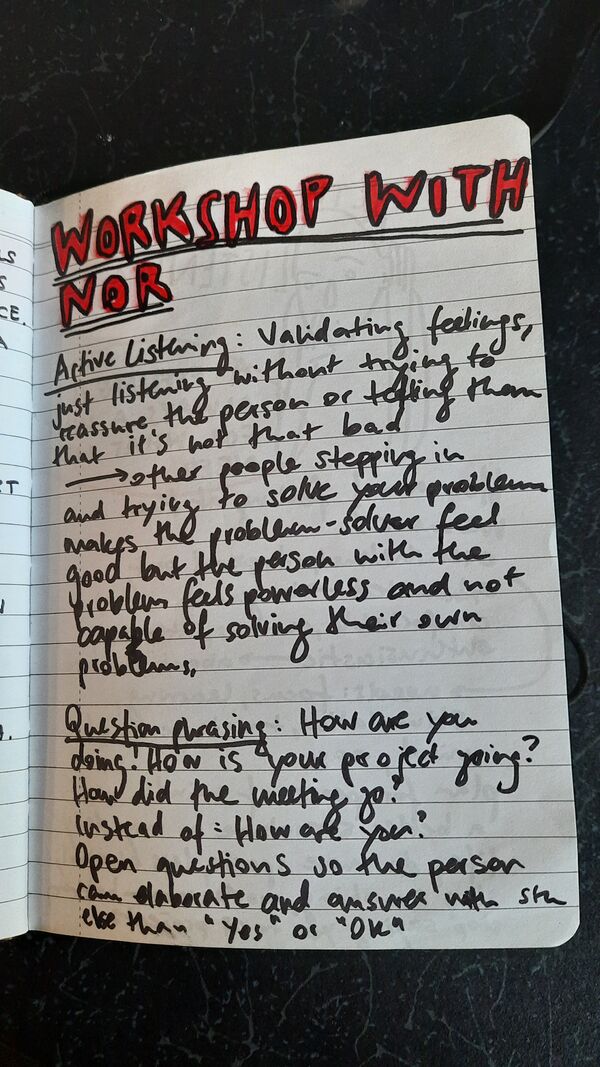 WORKSHOP WITH
NOR
Active Listening: Validating feelings,
just listening without trying to
reassure the person or telling them
that it's not that bad
→ other people stepping in
and trying to solve your problem
makes the problem-solver feel
good but the person with the
problem feels powerless and not
capable of solving their own
problems.
Question phrasing: How are you
doing? How is your project going?
How did the meeting go?
Instead of: How are you?
Open questions so the person
can elaborate and answer with sth
else than "Yes" or "OK"